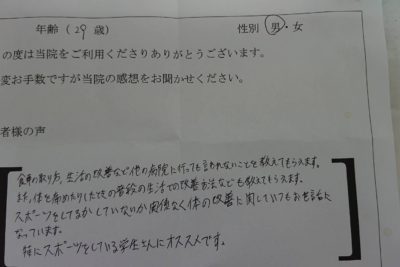 年齢（29 歳） 性別 男・女
の度は当院をご利用くださりありがとうございます。
変お手数ですが当院の感想をお聞かせください。
者様の声
食事の取り方、生活の改善など他の病院に行っても言われないことを教えてもらえます。
また、体を痛めたりしたときの普段の生活での改善方法なども教えてもらえます。
スポーツをしてるかしていないか関係なく体の改善に関していつもお世話に
なっています。
特にスポーツをしている学生さんにオススメです。